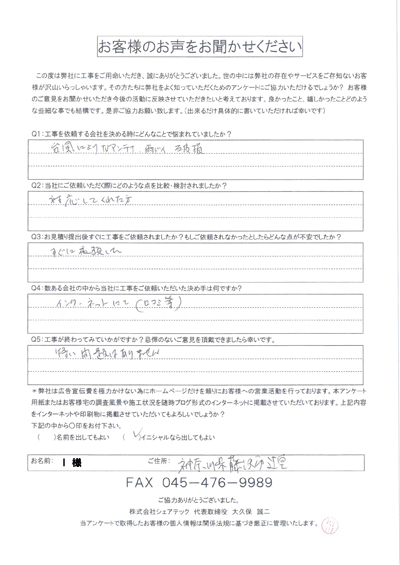 お客様のお声をお聞かせください
この度は弊社に工事をご用命いただき、誠にありがとうございました。世の中には弊社の存在やサービスをご存知ないお客
様が沢山いらっしゃいます。その方たちに弊社をよく知っていただくためのアンケートにご協力いただけるでしょうか？ お客様
のご意見をお聞かせいただき今後の活動に反映させていただきたいと考えております。良かったこと、嬉しかったことどのよう
な些細な事でも結構です。是非ご協力お願い致します。（出来るだけ具体的に書いていただければ幸いです）
Q1：工事を依頼する会社を決める時にどんなことで悩まれていましたか？
台風によりアンテナ
Q2：当社にご依頼いただく際にどのような点を比較・検討されましたか？
対応してくれた方
Q3：お見積り提出後すぐに工事をご依頼されましたか？もしご依頼されなかったとしたらどんな点が不安でしたか？
すぐに依頼した
Q4：数ある会社の中から当社に工事をご依頼いただいた決め手は何ですか？
インターネットにて（口コミ等）
Q5：工事が終わってみていかがですか？忌憚のないご意見を頂戴できましたら幸いです。
ありません
＊弊社は広告宣伝費を極力かけない為にホームページだけを頼りにお客様への営業活動を行っております。本アンケート
用紙またはお客様宅の調査風景や施工状況を随時ブログ形式のインターネットに掲載させていただいております。上記内容
をインターネットや印刷物に掲載させていただいてもよろしいでしょうか？
下記の中から〇印をお付下さい。
（ ）名前を出してもよい （✓）イニシャルなら出してもよい
お名前： I 様 ご住所： 神奈川県藤沢市辻堂
FAX 045-476-9989
ご協力ありがとうございました。
株式会社シェアテック 代表取締役 大久保 誠二
当アンケートで取得したお客様の個人情報は関係法規に基づき厳正に管理いたします。